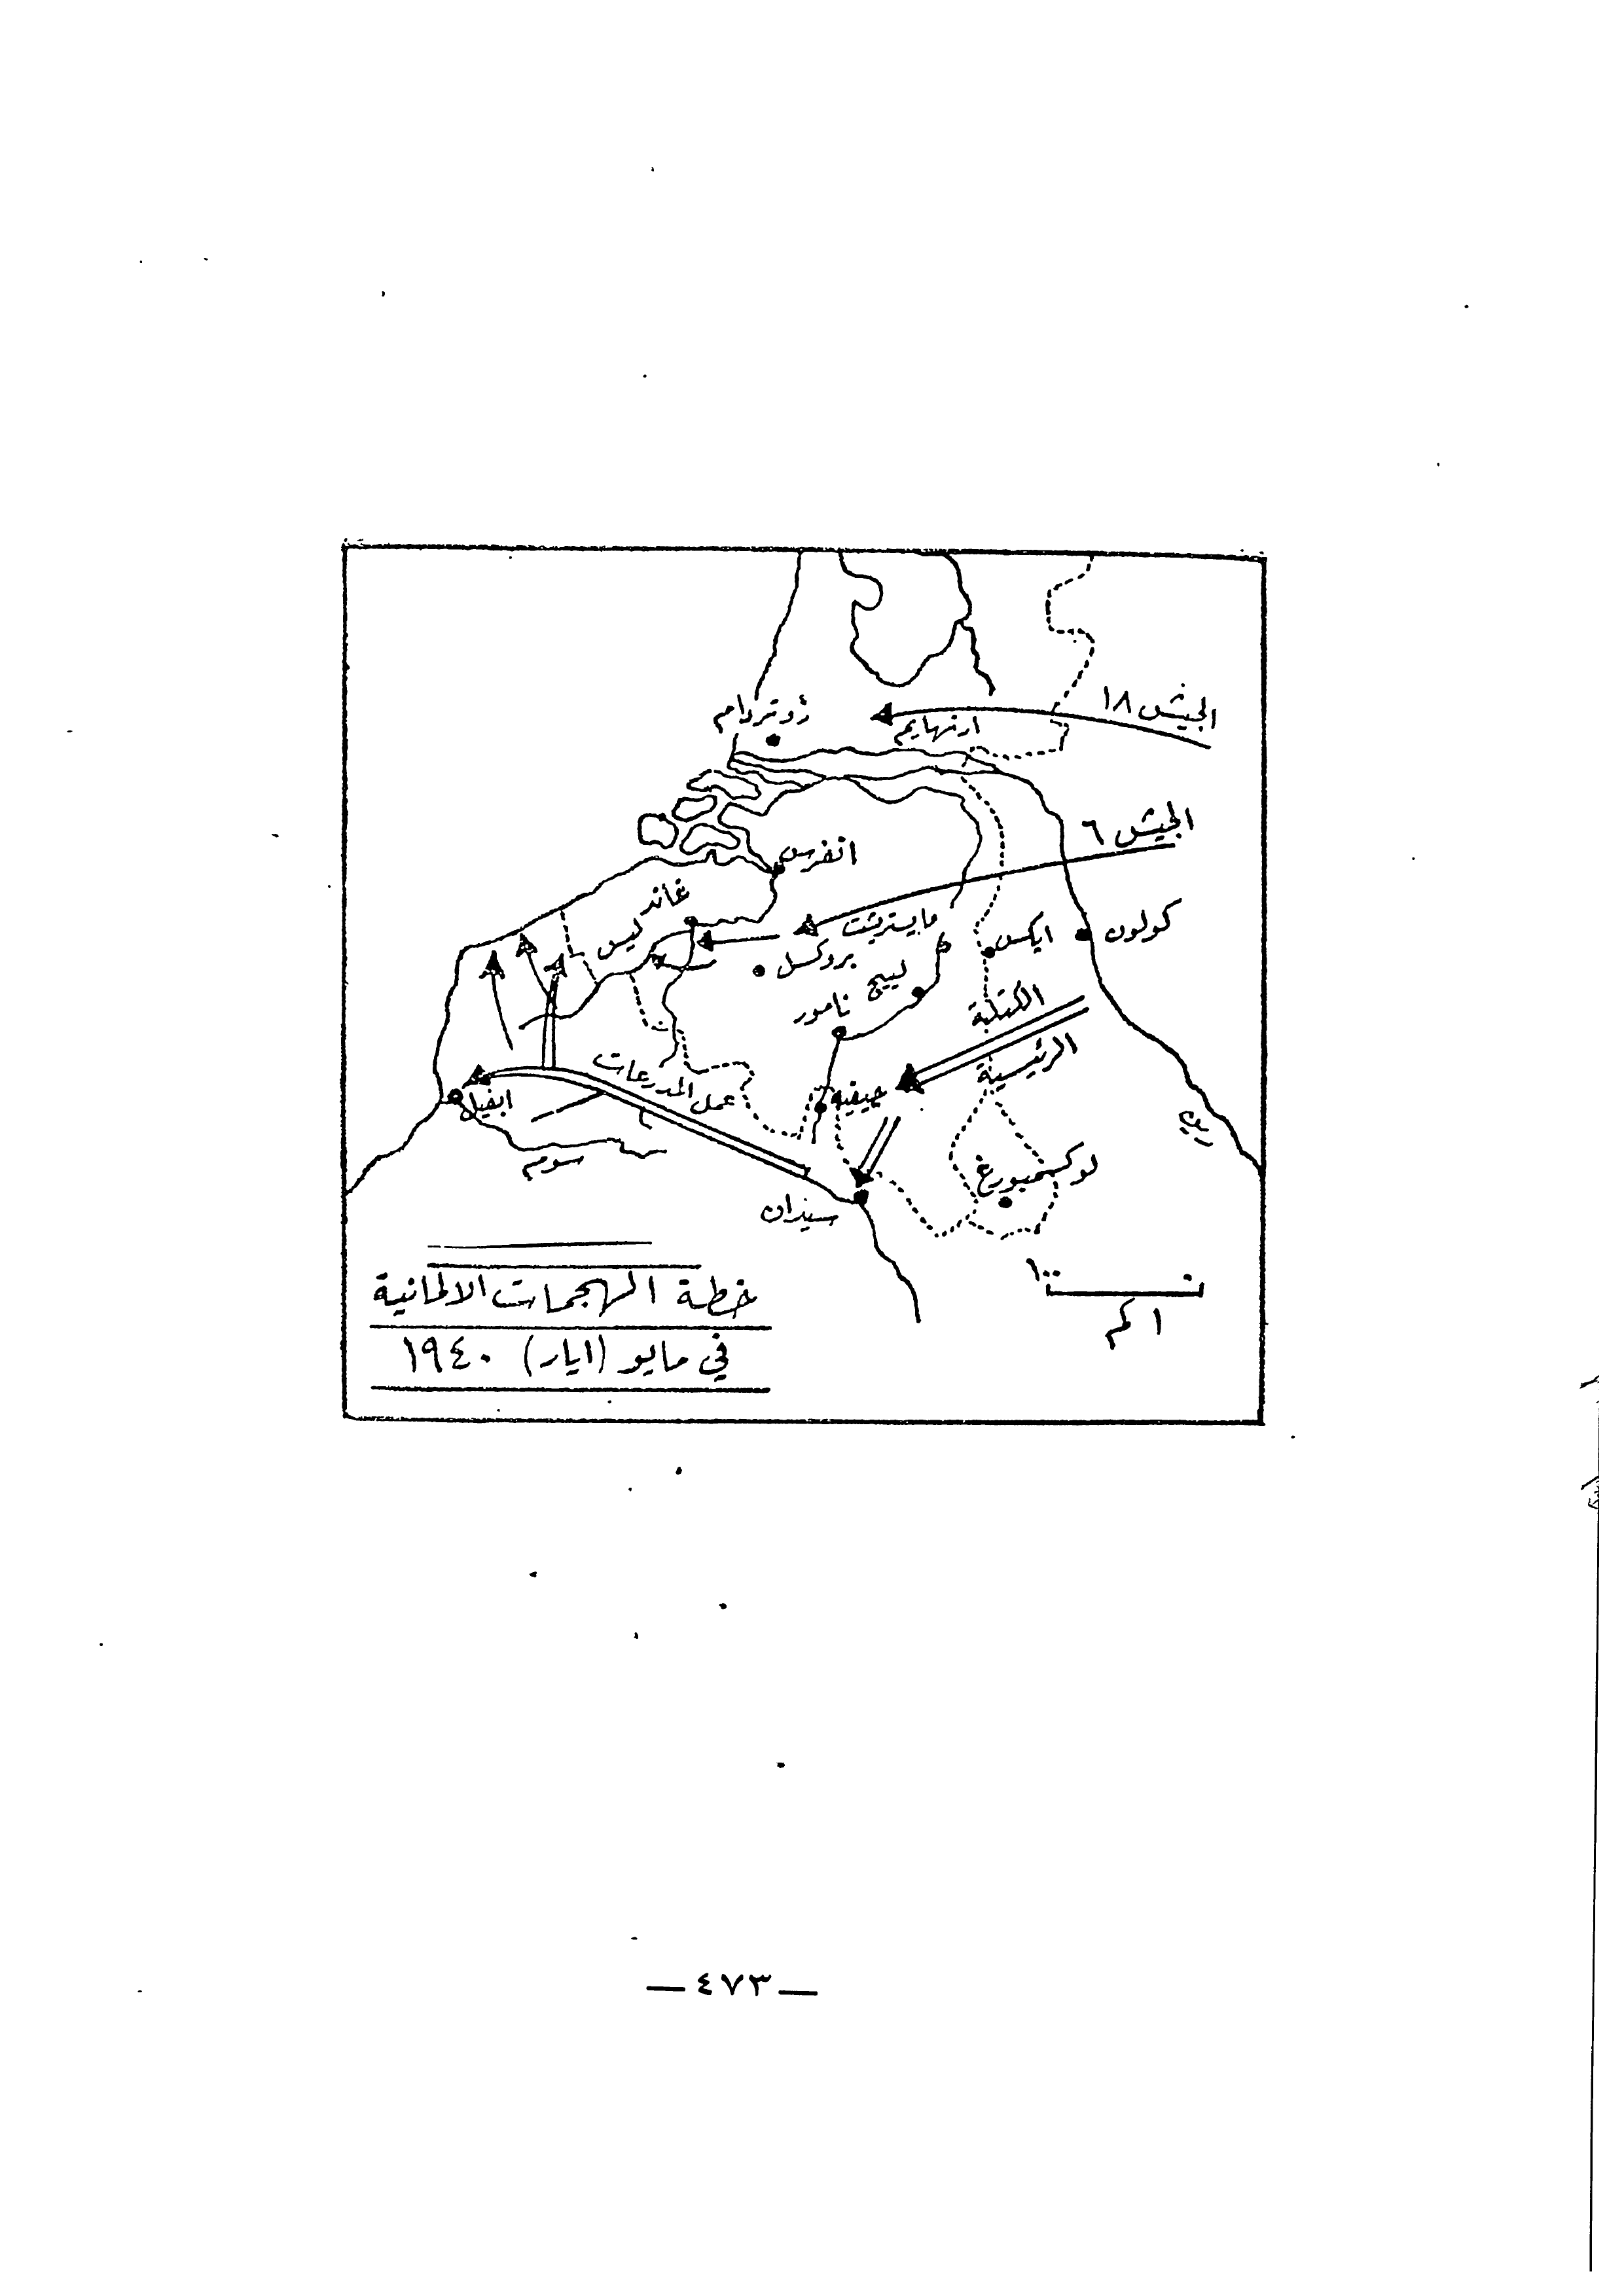 الجيش ١٨
روتردام
ارنهايم
الجيش ٦
انفرس
غاند
ليس
مايستريشت
بروكسل
ايكس
كولون
لييج
نامور
الكتلة
الرئيسية
جيفيه
عمل المدرعات
ابفيل
سوم
لوكسمبورغ
سيدان
١٠٠
١ كم
خطة الهجمات الالمانية
في مايو (ايار) ١٩٤٠
— ٤٧٣ —